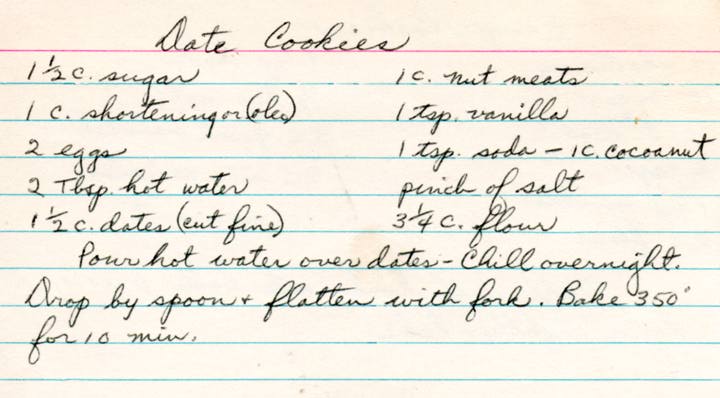 Date Cookies
1 1/2 c. sugar
1 c. shortening or (oleo)
2 eggs
2 Tbsp. hot water
1 1/2 c. dates (cut fine)
1 c. nut meats
1 tsp. vanilla
1 tsp. soda - 1 c. cocoanut
pinch of salt
3 1/4 c. flour
Pour hot water over dates - Chill overnight.
Drop by spoon + flatten with fork. Bake 350°
for 10 min.